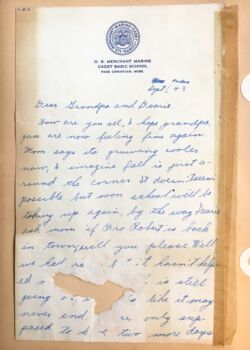 U. S. MERCHANT MARINE
CADET BASIC SCHOOL
PASS CHRISTIAN, MISS.
Sept 1, 43
Dear Grandpa and Dearie
How are you all, I hope grandpa
you are now feeling fine again
Mom says its growing cooler
now, I imagine fall is just a-
round the corner. It doesn't seem
possible but soon school will be
taking up again, by the way Dearie
ask mom if Bro Robert is back
in town, will you please. Well
we had ra it hasn't help
ed is still
going like it may
never end, re only sup-
posed to two more days